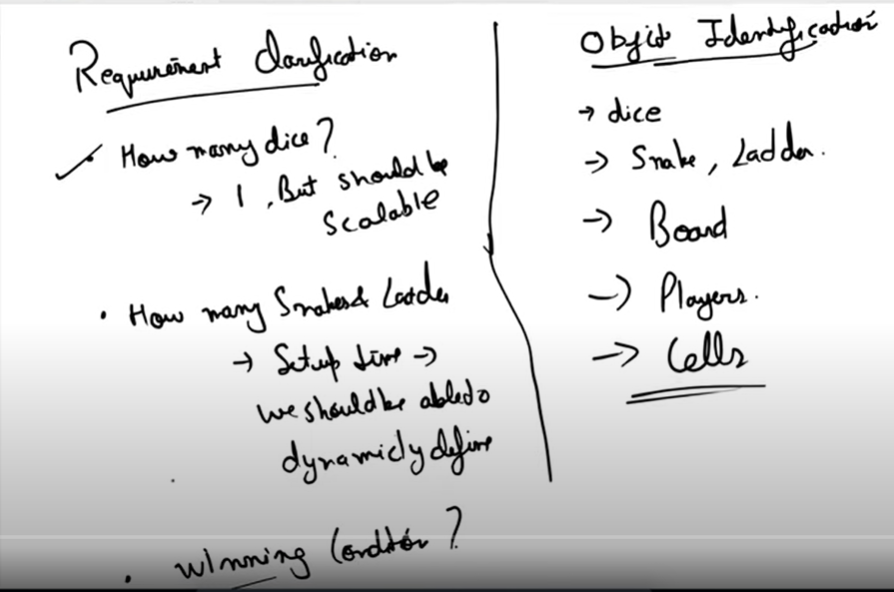 Requirement Clarification
✓ How many dice?
→ 1, But should be
scalable
• How many Snakes & Ladder
→ Setup time →
we should be able to
dynamicly define
• Winning Condition?
Object Identification
→ dice
→ Snake, Ladder.
→ Board
→ Players.
→ Cells